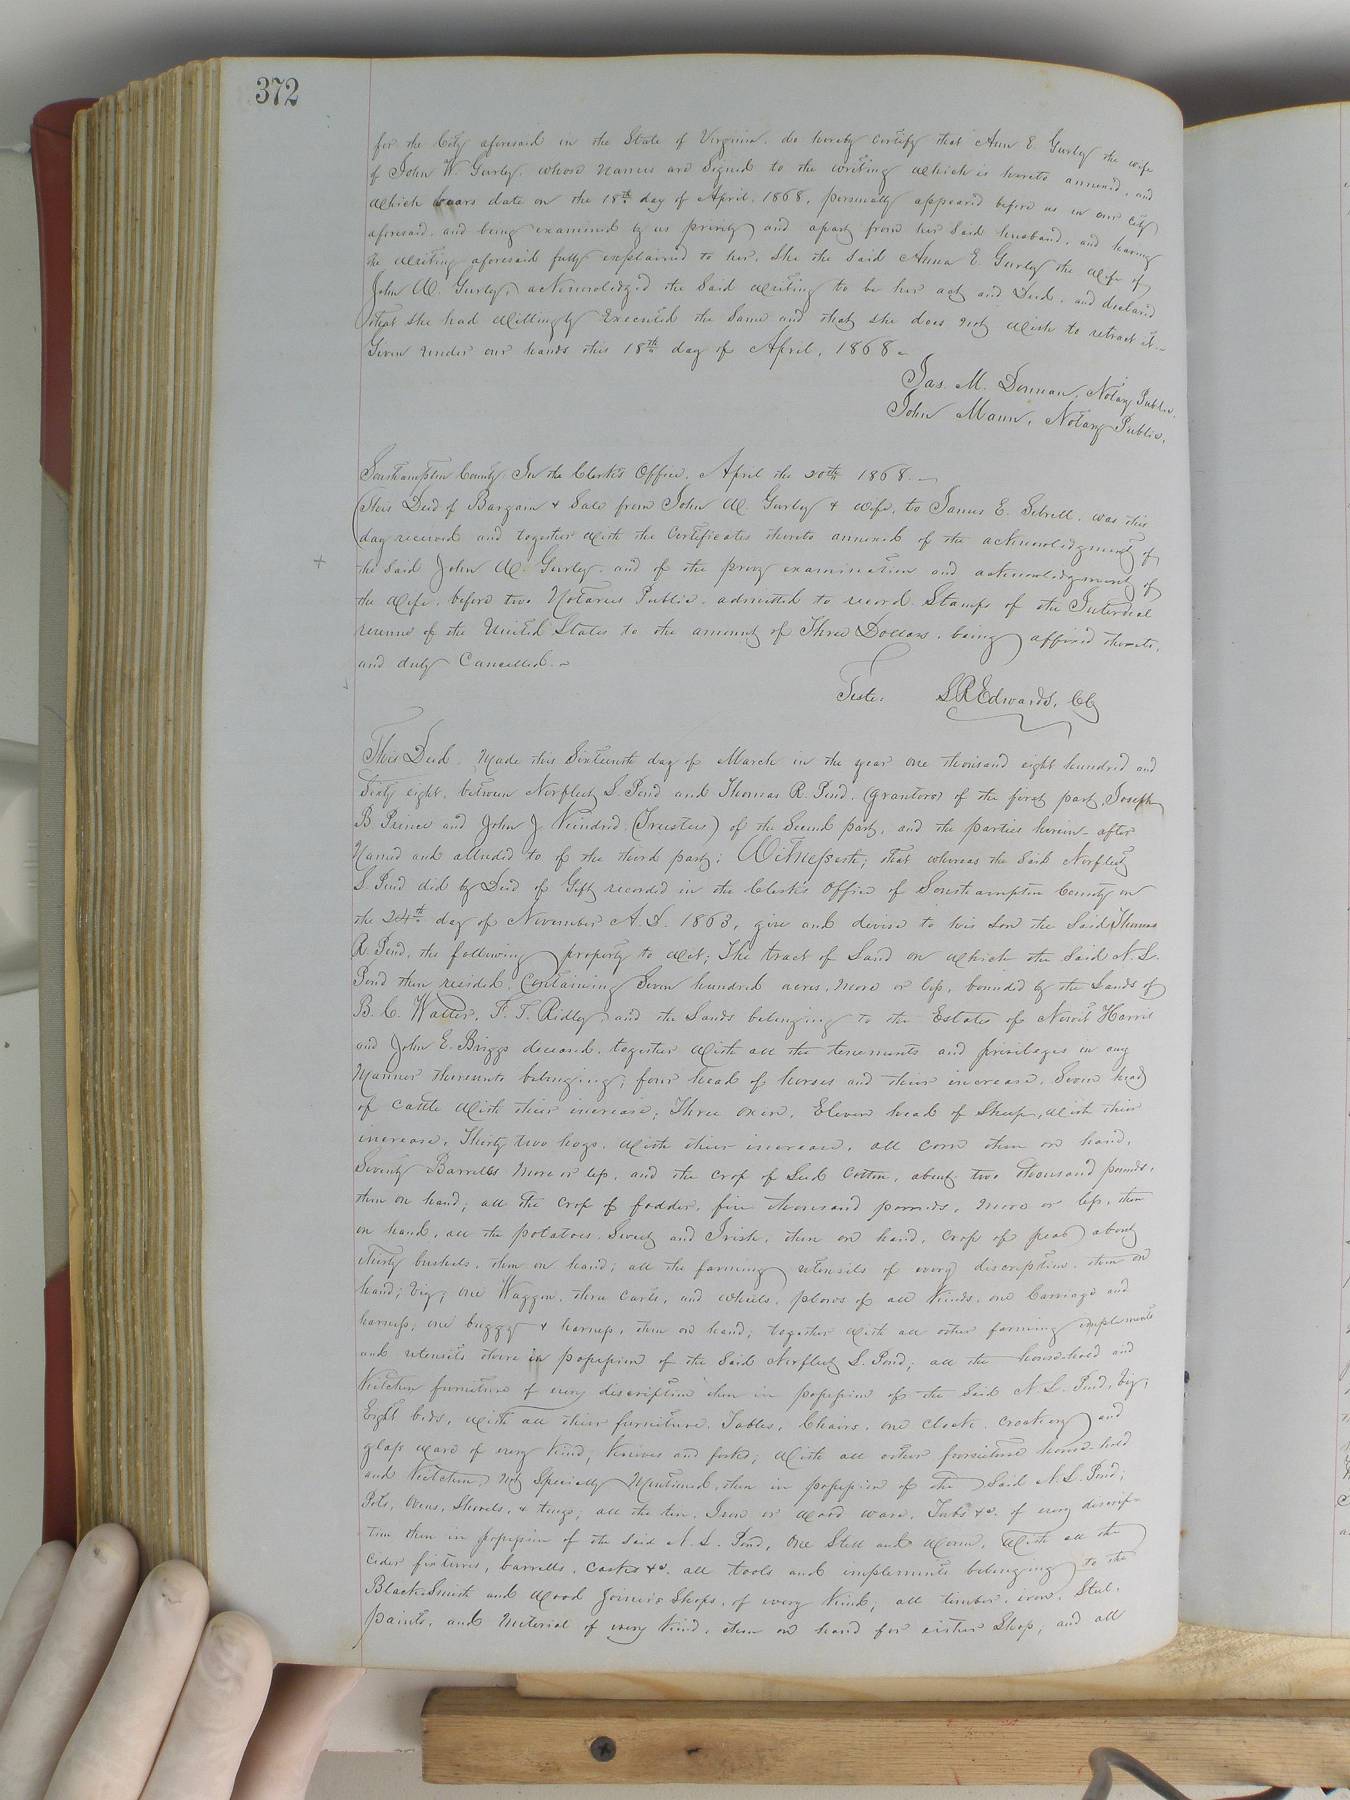 372
for the City aforesaid in the State of Virginia, do hereby Certify that Ann E. Gurley the wife
of John W. Gurley, whose Names are Signed to the writing which is hereto annexed, and
which bears date on the 18th day of April, 1868, personally appeared before us in our City
aforesaid, and being examined by us privily and apart from her Said husband, and having
the writing aforesaid fully explained to her, She the Said Anna E Gurley the wife of
John W. Gurley, acknowledged the Said writing to be her act and Deed, and declared
that she had willingly Executed the Same and that she does not wish to retract it.
Given under our hands this 18th day of April, 1868
Jas. M. Donnan, Notary Public.
John Mann, Notary Public.
Southampton County. In the Clerk's Office, April the 20th 1868.
This Deed of Bargain & Sale from John W. Gurley & wife, to James E. Sebrell, was this
day received and together with the Certificates thereto annexed of the acknowledgment of
+
the Said John W. Gurley, and of the privy examination and acknowledgment of
the wife, before two Notaries Public, admitted to record. Stamps of the Internal
revenue of the United States to the amount of Three Dollars, being affixed thereto,
and duly Cancelled.
Teste. L R Edwards, CC
This Deed, Made this Sixteenth day of March in the year one thousand eight hundred and
Sixty eight, between Norfleet S. Pond and Thomas R. Pond, (grantors) of the first part, Joseph
B. Prince and John J. Kindred (Trustees) of the Second part, and the parties herein-after
Named and alluded to of the third part; Witnesseth; that whereas the Said Norfleet
S. Pond did by Deed of Gift recorded in the Clerk's Office of Southampton County on
the 24th day of November A.D. 1863, give and devise to his Son the Said Thomas
R. Pond, the following property to wit; The tract of Land on which the Said N. S.
Pond then resided, Containing Seven hundred acres, More or less, bounded by the Lands of
B. C. Waller, F. T. Ridley, and the Lands belonging to the Estates of Harris
and John E. Briggs deceased, together with all the tenements and privileges in any
Manner thereunto belonging; four head of horses and their increase, Seven head
of cattle with their increase, Three oxen, Eleven head of Sheep, with their
increase, Thirty two hogs, with their increase, all corn then on hand,
Seventy Barrells More or less, and the crop of Seed Cotton, about two thousand pounds,
then on hand; all the crop of fodder, five thousand pounds, More or less, then
on hand, all the potatoes, Sweet and Irish, then on hand, crop of peas about
thirty bushels, then on hand; all the farming utensils of every discription, then on
hand; viz; one Waggon, three carts, and wheels, plows of all Kinds, one Carriage and
harness, one buggy & harness, then on hand; together with all other farming implements
and utensils there in possession of the Said Norfleet S. Pond; all the household and
Kitchen furniture of every discription then in possession of the Said N. S. Pond, viz;
Eight beds, with all their furniture, Tables, Chairs, one clock, crockery and
glass ware of every Kind, Knives and forks; with all other furniture household
and Kitchen, Not Specially Mentioned, then in possession of the Said N. S. Pond;
Pots, Ovens, Shovels, & tongs; all the tin, Iron or wood ware, Tubs &c. of every discrip-
tion then in possession of the Said N. S. Pond, One Still and Worm, With all the
Cider fixtures, barrells, Casks &c. all tools and implements belonging to the
Black-Smith and Wood Joiner's Shops, of every Kind; all timber, iron, Steel,
paints, and Material of every Kind, then on hand for either Shop; and all